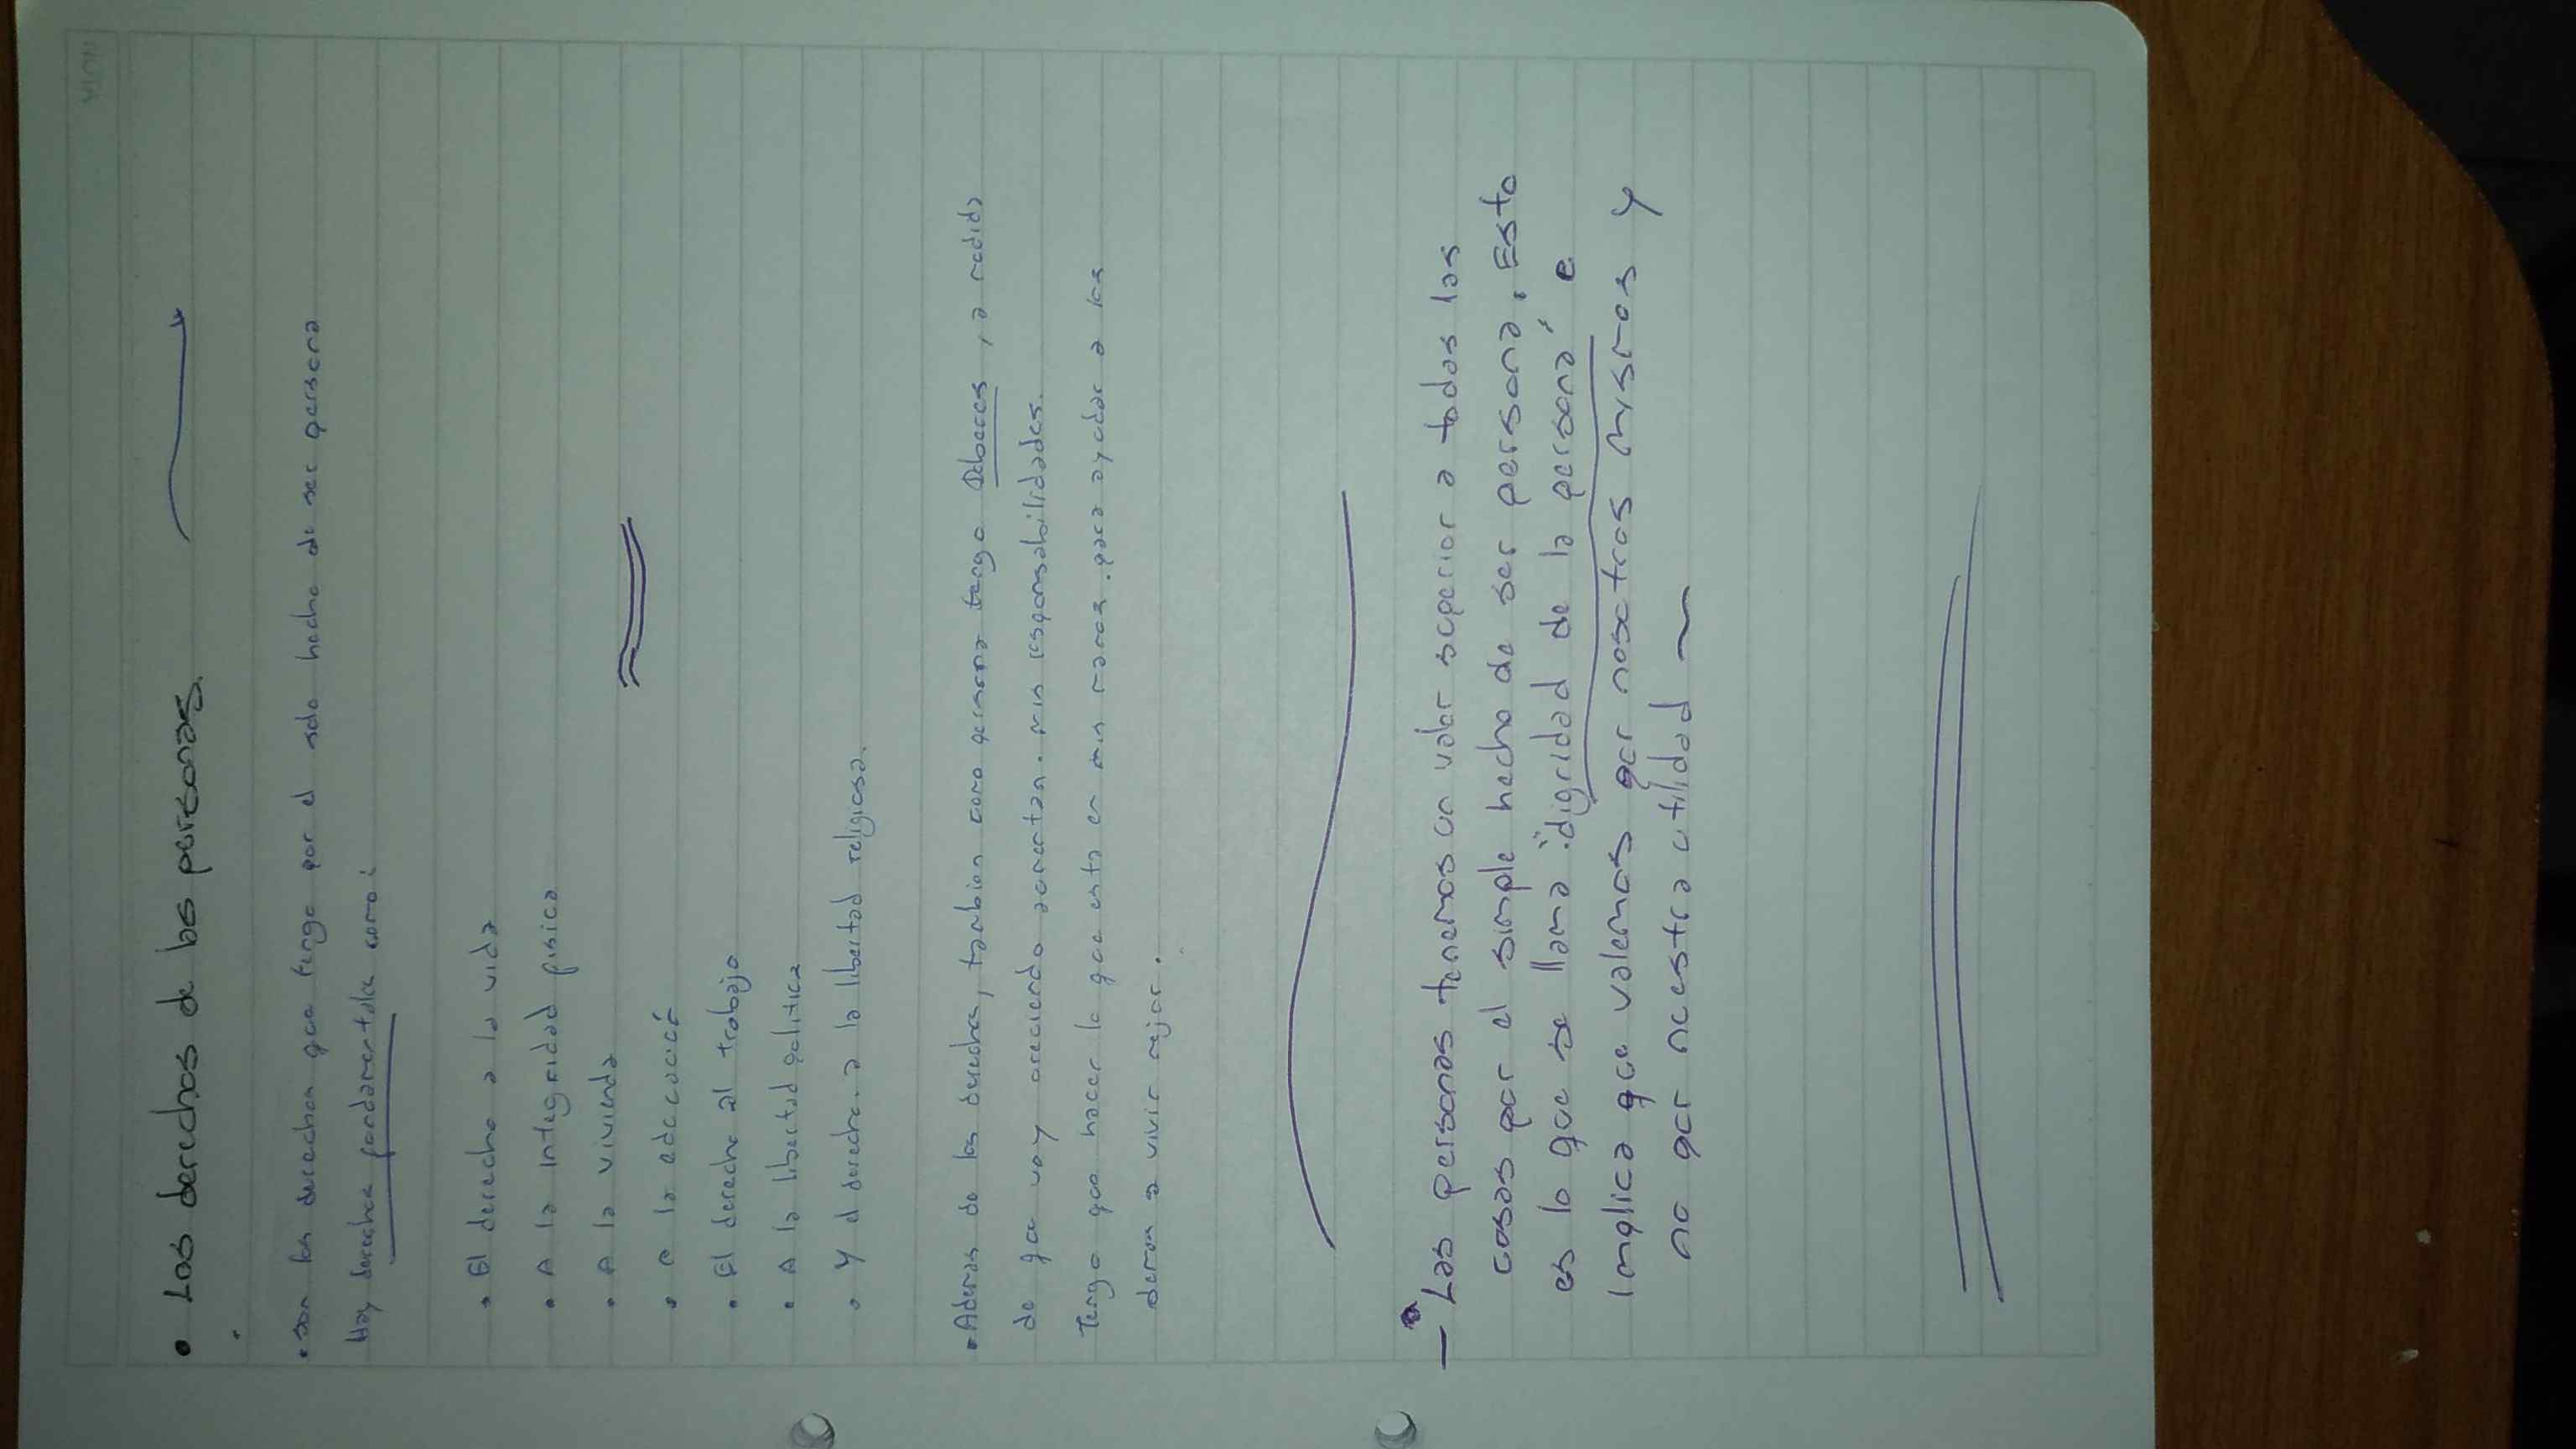 • Los derechos de las personas.
• son los derechos que tengo por el solo hecho de ser persona
Hay derechos fundamentales como:
• El derecho a la vida
• A la integridad fisica
• A la vivienda
• a la educació
• El derecho al trabajo
• A la libertad politica
• Y el derecho a la libertad religiosa.
• Ademas de los derechos, tambien como persona tengo Deberes, a medida
de que voy creciendo aumentan mis responsabilidades.
Tengo que hacer lo que esta en mis manos para ayudar a los
demas a vivir mejor.
— Las personas tenemos un valor superior a todas las
cosas por el simple hecho de ser persona, Esto
es lo que se llama "dignidad de la persona" e
implica que valemos por nosotros mismos y
no por nuestra utilidad